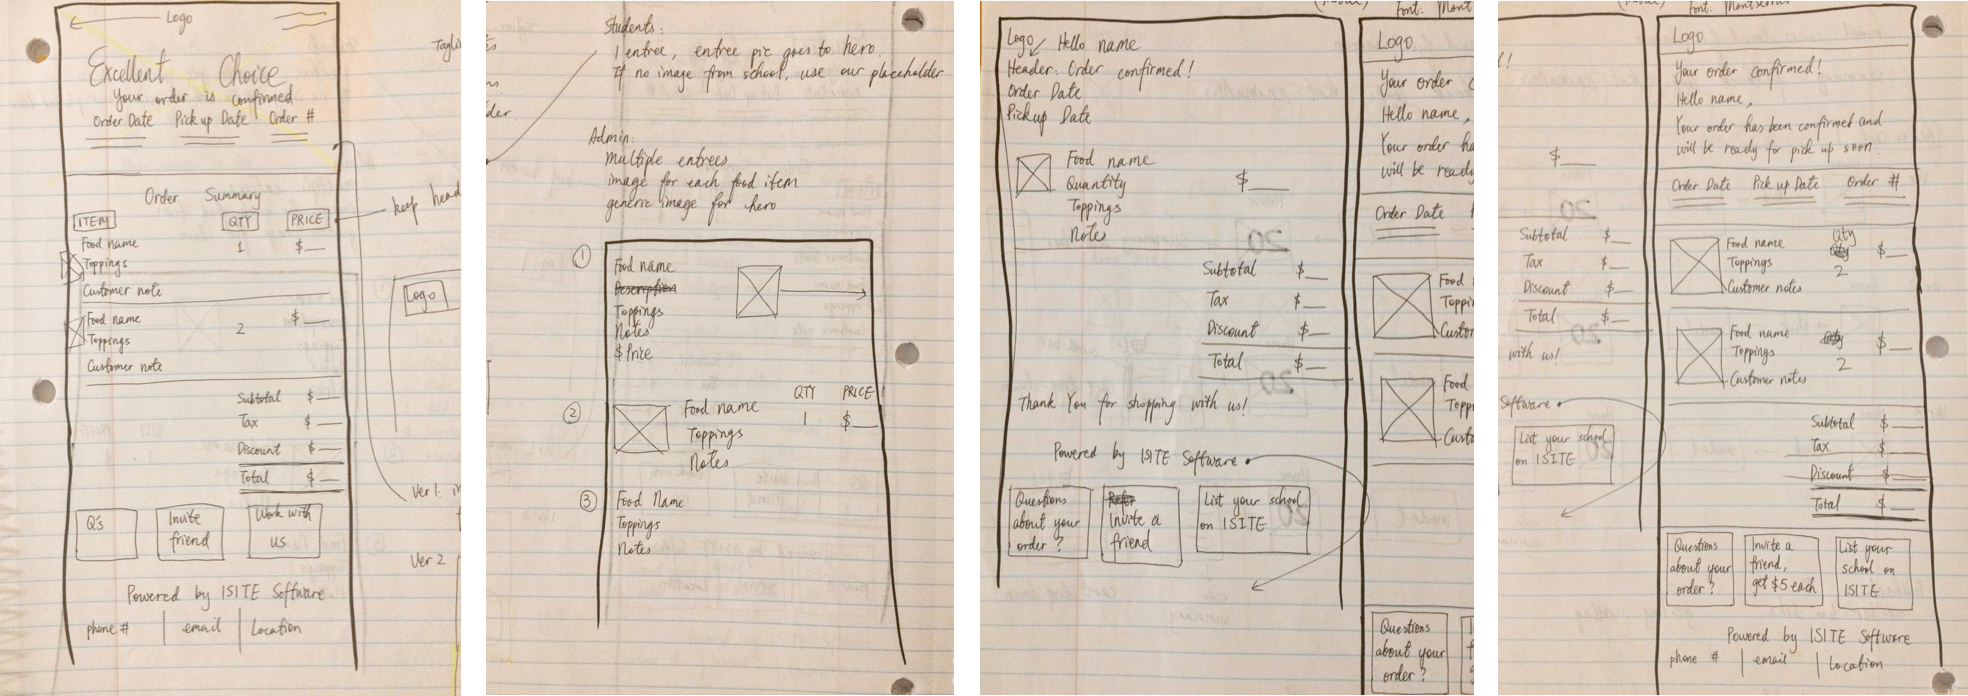 Logo
Excellent Choice
Your order is confirmed
Order Date Pick up Date Order #
Order Summary
ITEM QTY PRICE
Food name 1 $
Toppings
Customer note
Food name 2 $
Toppings
Customer note
Subtotal $
Tax $
Discount $
Total $
Q's
Invite friend
Work with us
Powered by ISITE Software
phone # | email | Location
keep head
Logo
Ver 1:
Ver 2
Students:
1 entree, entree pic goes to hero
If no image from school, use our placeholder
der.
Admin:
Multiple entrees
image for each food item
generic image for hero
1
Food name
Description
Toppings
Notes
$ Price
2
QTY PRICE
Food name 1 $
Toppings
Notes
3
Food Name
Toppings
Notes
Logo Hello name
Header: Order confirmed!
Order Date
Pickup Date
Food name
Quantity $
Toppings
Note
Subtotal $
Tax $
Discount $
Total $
Thank You for shopping with us!
Powered by ISITE Software
Questions
about your
order?
Invite a
friend
List your school
on ISITE
Font: Mont
Logo
Your order
Hello name,
Your order ha
will be ready
Order Date
Food
Toppi
Custom
Food
Topp
Custo
Questions
about your
order?
$
Subtotal $
Tax $
Discount $
Total $
with us!
Software
List your school
on ISITE
Font: Montserrat
Logo
Your order confirmed!
Hello name,
Your order has been confirmed and
will be ready for pick up soon.
Order Date Pick up Date Order #
Food name Qty $
Toppings 2
Customer notes
Food name $
Toppings 2
Customer notes
Subtotal $
Tax $
Discount $
Total $
Questions
about your
order?
Invite a
friend,
get $5 each
List your
school on
ISITE
Powered by ISITE Software
phone # | email | Location